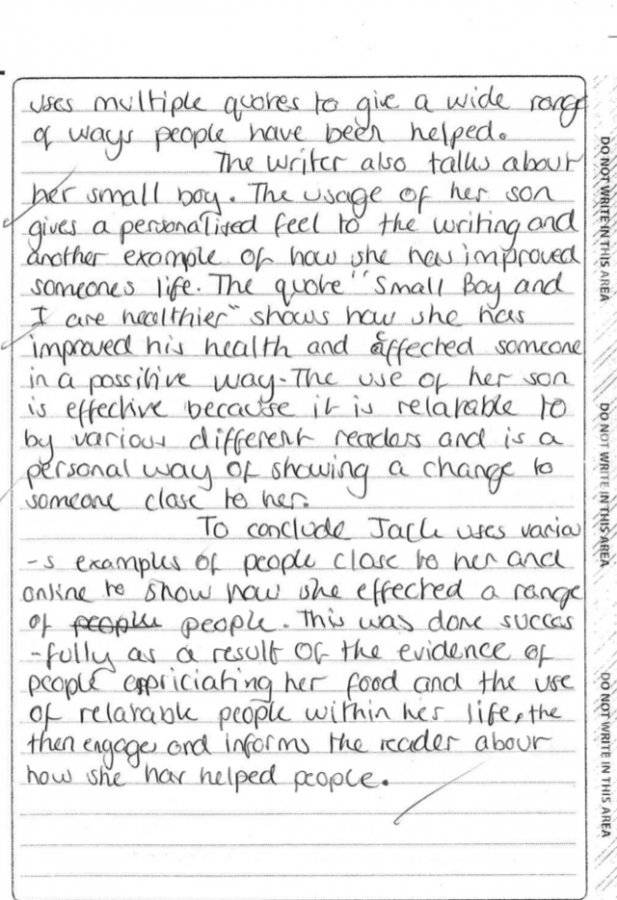 uses multiple quotes to give a wide range
of ways people have been helped.
The writer also talks about
her small boy. The usage of her son
gives a personalised feel to the writing and
another example of how she has improved
someones life. The quote "Small Boy and
I are healthier" shows how she has
improved his health and affected someone
in a possitive way. The use of her son
is effective because it is relatable to
by various different readers and is a
personal way of showing a change to
someone close to her.
To conclude Jack uses variou
-s examples of people close to her and
online to show how she effected a range
of people people. This was done succes
-fully as a result of the evidence of
people appriciating her food and the use
of relatable people within her life, the
then engage and informs the reader about
how she has helped people.
DO NOT WRITE IN THIS AREA
DO NOT WRITE IN THIS AREA
DO NOT WRITE IN THIS AREA